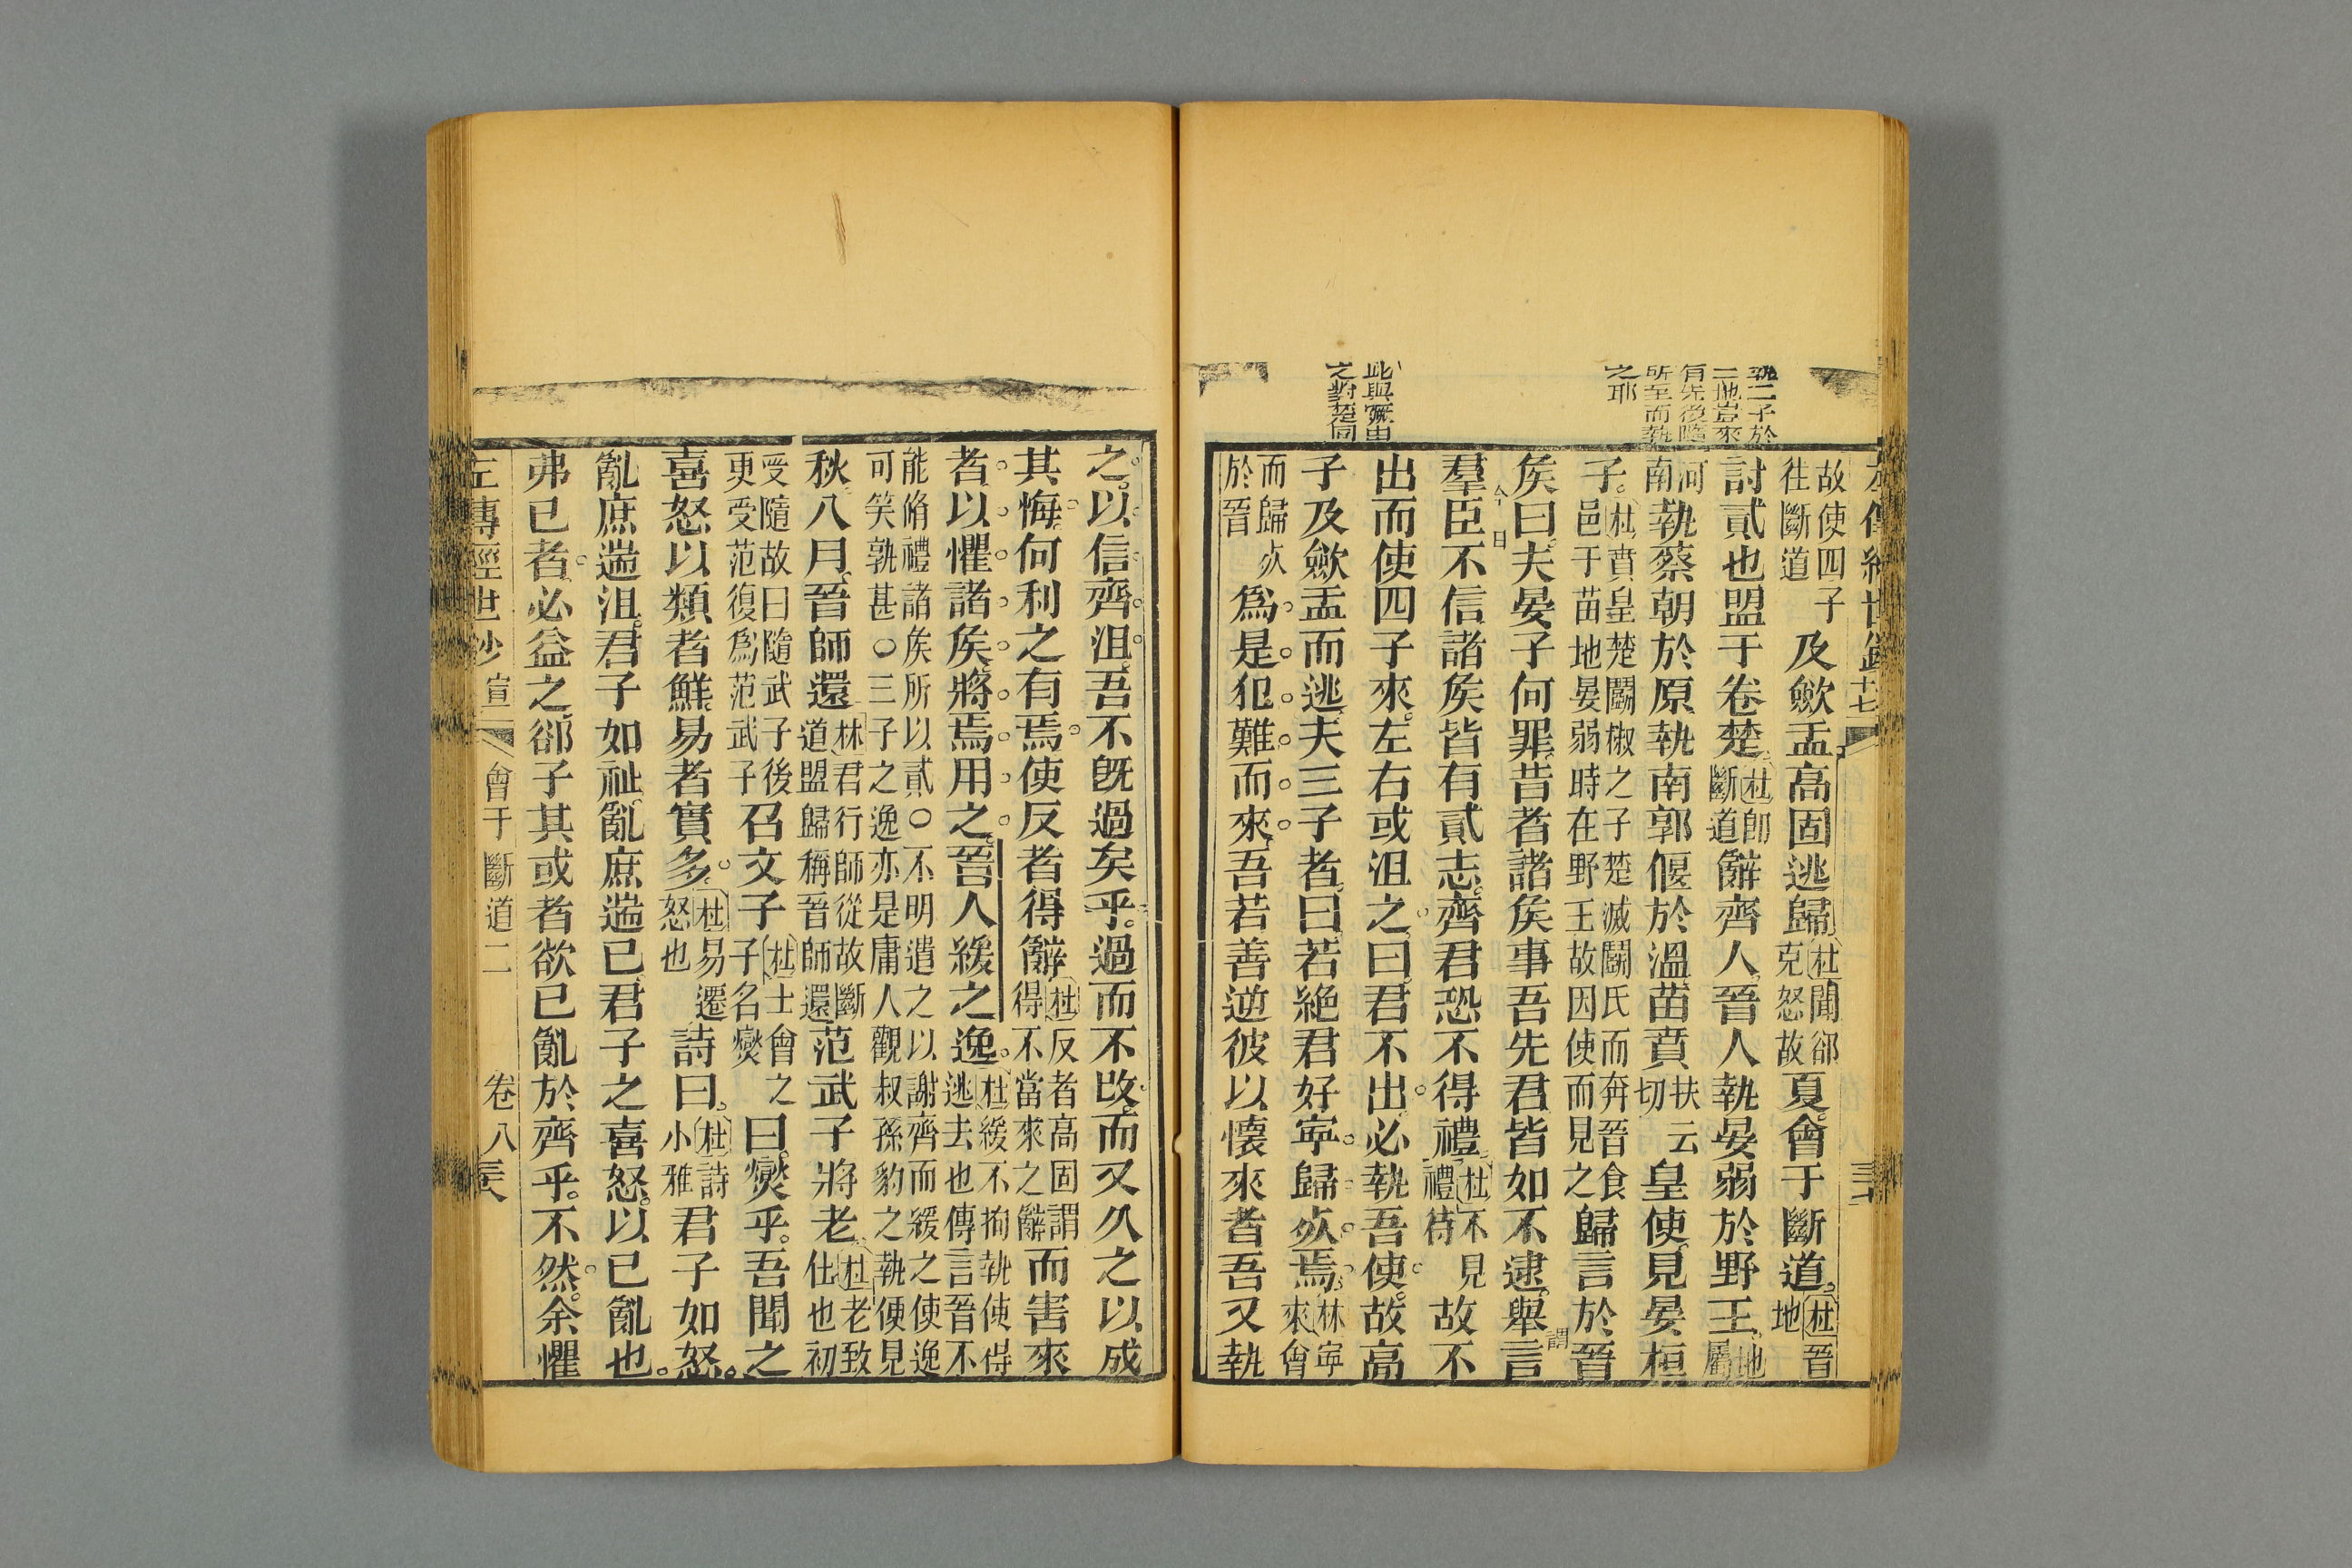 執二子於
二地豈來
有先後隨
所至而執
之耶
此與蹶由
之對楚同
故使四子往斷道及歛盂高固逃歸杜聞郤克怒故夏會于斷道杜晉地
討貳也盟于卷楚杜卽斷道辭齊人晉人執晏弱於野王地屬
河南執蔡朝於原執南郭偃於溫苗賁扶云切皇使見晏桓
子杜賁皇楚鬭椒之子楚滅鬭氏而奔晉食邑于苗地晏弱時在野王故因使而見之歸言於晉
矦曰夫晏子何罪昔者諸矦事吾先君皆如不逮舉言謂
羣臣今日不信諸矦皆有貳志齊君恐不得禮杜不見禮待故不
出而使四子來左右或沮之曰君不出必執吾使故高
子及歛盂而逃夫三子者曰若絕君好寧歸𣦸焉林寧來會
而歸𣦸於晉爲是犯難而來吾若善逆彼以懷來者吾又執
之以信齊沮吾不旣過矣乎過而不改而又久之以成
其悔何利之有焉使反者得辭杜反者高固謂得不當來之辭而害來
者以懼諸矦將焉用之晉人緩之逸杜緩不拘執使得逃去也傳言晉不
能脩禮諸矦所以貳○不明遣之以謝齊而緩之使逸可笑孰甚○三子之逸亦是庸人觀叔孫豹之執便見
秋八月晉師還林君行師從故斷道盟歸稱晉師還范武子將老杜老致仕也初
受隨故曰隨武子後更受范復爲范武子召文子杜士會之子名燮曰燮乎吾聞之
喜怒以類者鮮易者實多杜易遷怒也詩曰杜詩小雅君子如怒
亂庶遄沮君子如祉亂庶遄已君子之喜怒以已亂也
弗已者必益之郤子其或者欲已亂於齊乎不然余懼
左傳經世鈔 宣 會于斷道二 卷八